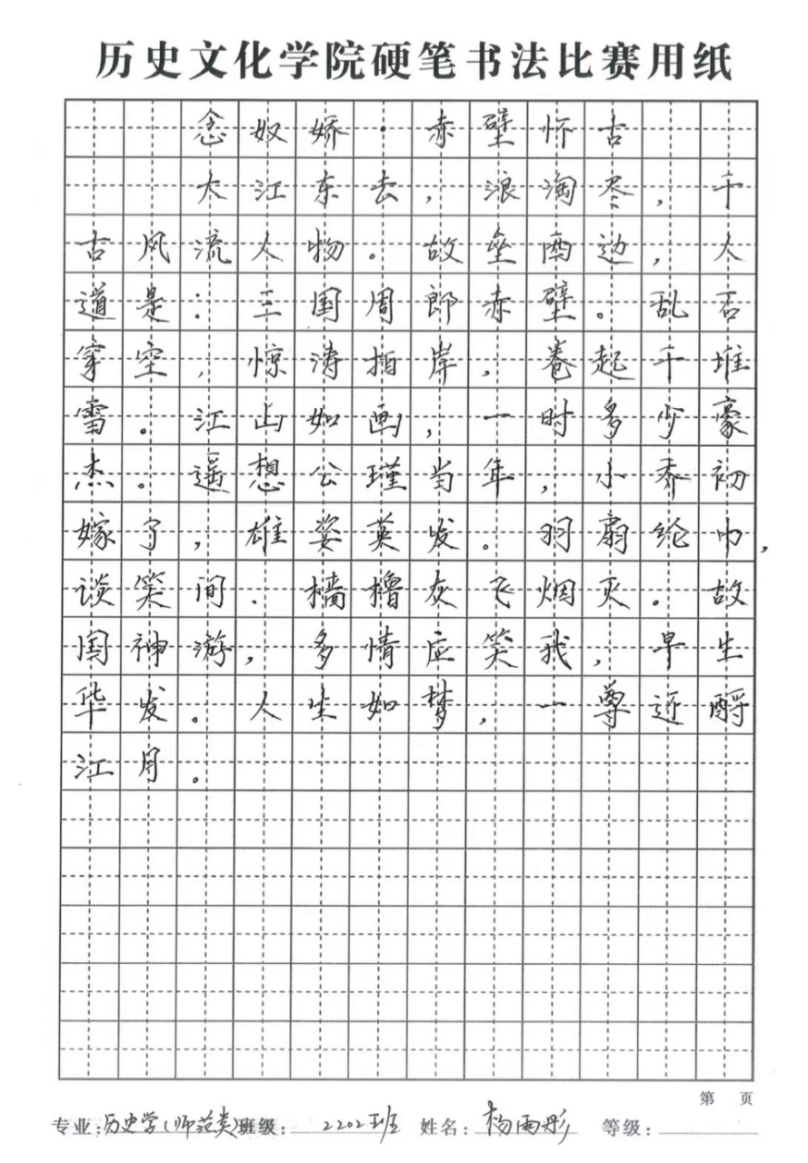 历史文化学院硬笔书法比赛用纸
念奴娇·赤壁怀古
大江东去，浪淘尽，千
古风流人物。故垒西边，人
道是：三国周郎赤壁。乱石
穿空，惊涛拍岸，卷起千堆
雪。江山如画，一时多少豪
杰。遥想公瑾当年，小乔初
嫁了，雄姿英发。羽扇纶巾，
谈笑间．樯橹灰飞烟灭。故
国神游，多情应笑我，早生
华发。人生如梦，一尊还酹
江月。
第 页
专业：历史学(师范类)班级：2202班 姓名：杨雨彤 等级：